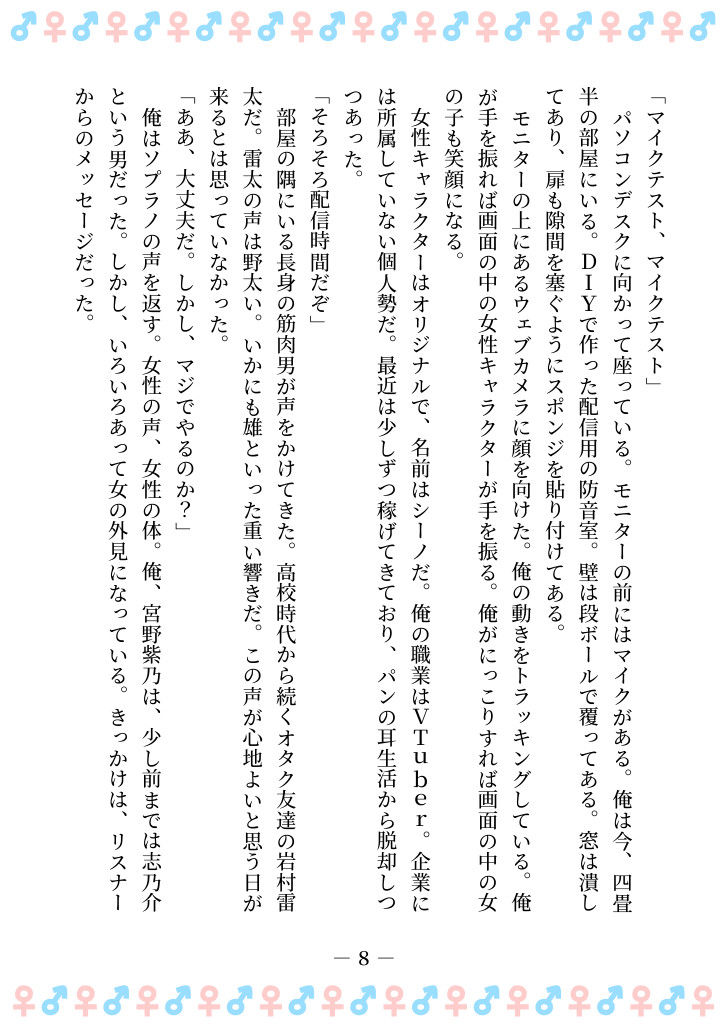 「マイクテスト、マイクテスト」
　パソコンデスクに向かって座っている。モニターの前にはマイクがある。俺は今、四畳
半の部屋にいる。ＤＩＹで作った配信用の防音室。壁は段ボールで覆ってある。窓は潰し
てあり、扉も隙間を塞ぐようにスポンジを貼り付けてある。
　モニターの上にあるウェブカメラに顔を向けた。俺の動きをトラッキングしている。俺
が手を振れば画面の中の女性キャラクターが手を振る。俺がにっこりすれば画面の中の女
の子も笑顔になる。
　女性キャラクターはオリジナルで、名前はシーノだ。俺の職業はＶＴｕｂｅｒ。企業に
は所属していない個人勢だ。最近は少しずつ稼げてきており、パンの耳生活から脱却しつ
つあった。
「そろそろ配信時間だぞ」
　部屋の隅にいる長身の筋肉男が声をかけてきた。高校時代から続くオタク友達の岩村雷
太だ。雷太の声は野太い。いかにも雄といった重い響きだ。この声が心地よいと思う日が
来るとは思っていなかった。
「ああ、大丈夫だ。しかし、マジでやるのか？」
　俺はソプラノの声を返す。女性の声、女性の体。俺、宮野紫乃は、少し前までは志乃介
という男だった。しかし、いろいろあって女の外見になっている。きっかけは、リスナー
からのメッセージだった。
― 8 ―